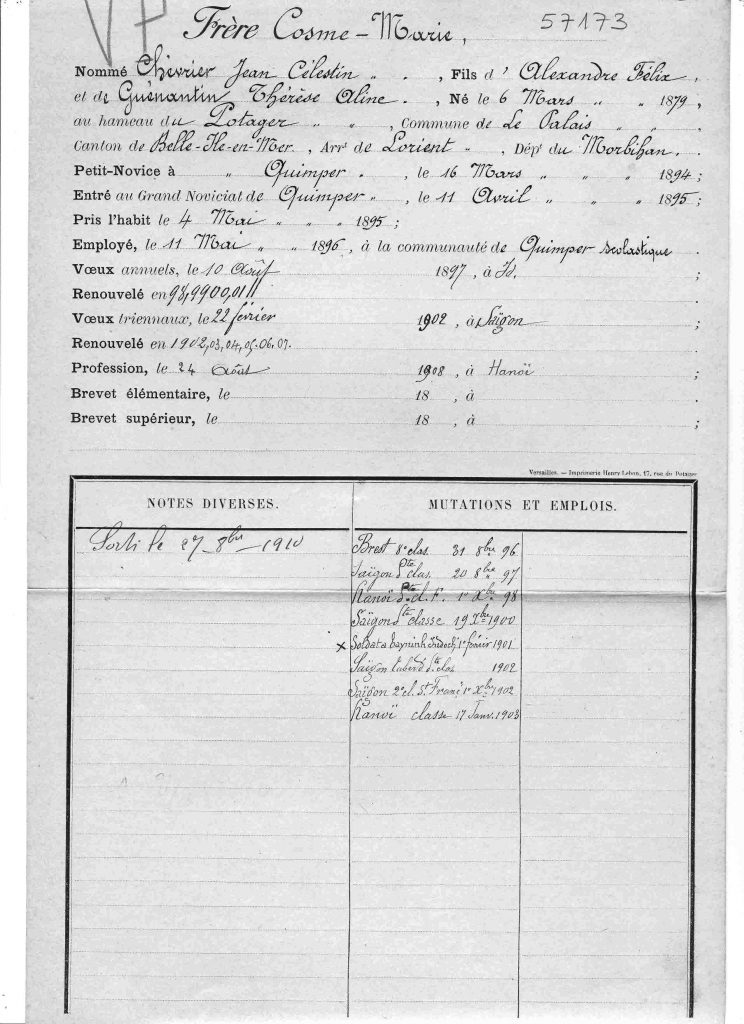 57173
Frère Cosme-Marie,
Nommé Chévrier Jean Célestin „ „ , Fils d' Alexandre Félix ,
et de Guénantin Thérèse Aline . , Né le 6 Mars „ „ 1879 ,
au hameau du Potager „ „ , Commune de Le Palais „ „ ,
Canton de Belle-Ile-en-Mer , Arrt de Lorient „ , Dépt du Morbihan .
Petit-Novice à „ Quimper . , le 16 Mars „ „ „ 1894 ;
Entré au Grand Noviciat de Quimper „ , le 11 Avril „ „ „ 1895 ;
Pris l'habit le 4 Mai „ „ „ 1895 ;
Employé, le 11 Mai „ „ 1896 , à la communauté de Quimper scolastique .
Vœux annuels, le 10 Août 1897 , à Id. ;
Renouvelé en 98,99 00,01 .
Vœux triennaux, le 22 février 1902 , à Saïgon ;
Renouvelé en 1902,03,04,05.06.07. .
Profession, le 24 Août 1908 , à Hanoï ;
Brevet élémentaire, le 18 , à .
Brevet supérieur, le 18 , à ;
Versailles. — Imprimerie Henry Lebon, 17, rue du Potager
NOTES DIVERSES.
MUTATIONS ET EMPLOIS.
Sorti le 27 8bre 1910
Brest 8e clas. 31 8bre 96
Saïgon Pte clas. 20 8bre 97
Hanoï Pte cl. F. 1er Xbre 98
Saïgon Pte classe 19 Xbre 1900
x Soldat à tayninh Indoch 1er février 1901
Saïgon taberd Pte clas 1902
Saïgon 2e cl. St Franç 1er Xbre 1902
Hanoï classe 17 Janv. 1903